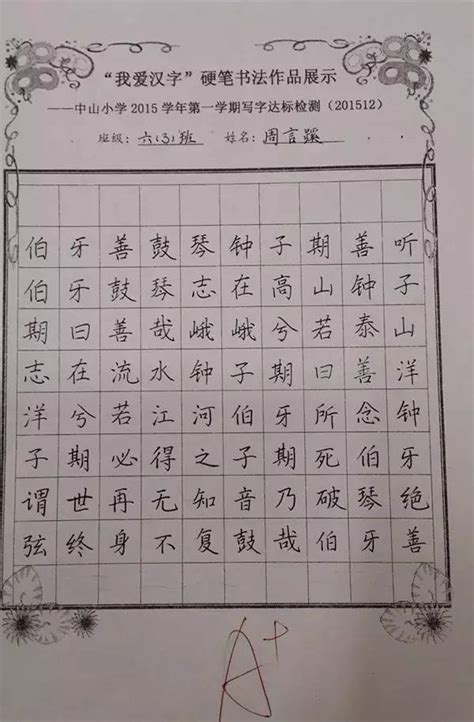 “我爱汉字”硬笔书法作品展示
——中山小学2015学年第一学期写字达标检测（201512）
班级：六(3)班 姓名：周言蹊
伯牙善鼓琴钟子期善听
伯牙鼓琴志在高山钟子
期曰善哉峨峨兮若泰山
志在流水钟子期曰善洋
洋兮若江河伯牙所念钟
子期必得之子期死伯牙
谓世再无知音乃破琴绝
弦终身不复鼓哉伯牙善
A+